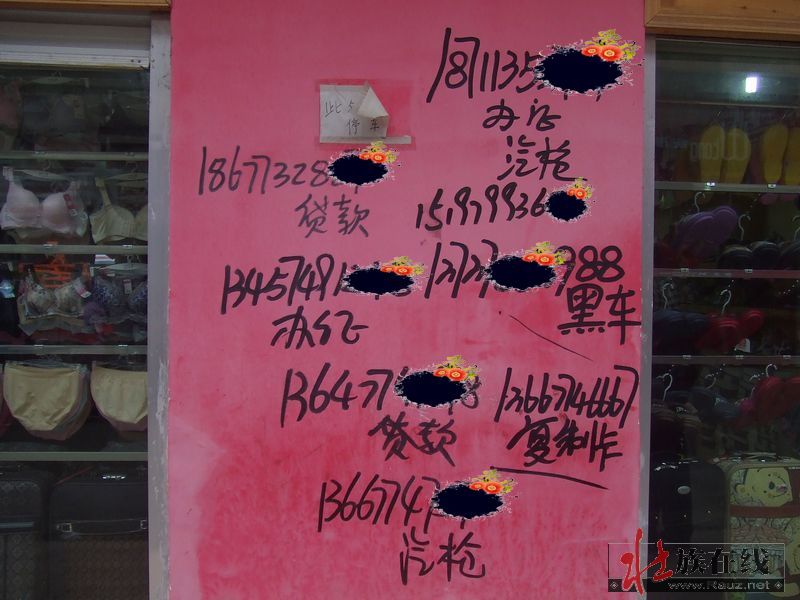 1871135
办证
汽枪
此
停车
18677328
贷款
151979936
1345749
办证
13737
988
黑车
136477
贷款
13667746667
复制作
13667747
汽枪
壮族在线
www.Rauz.net